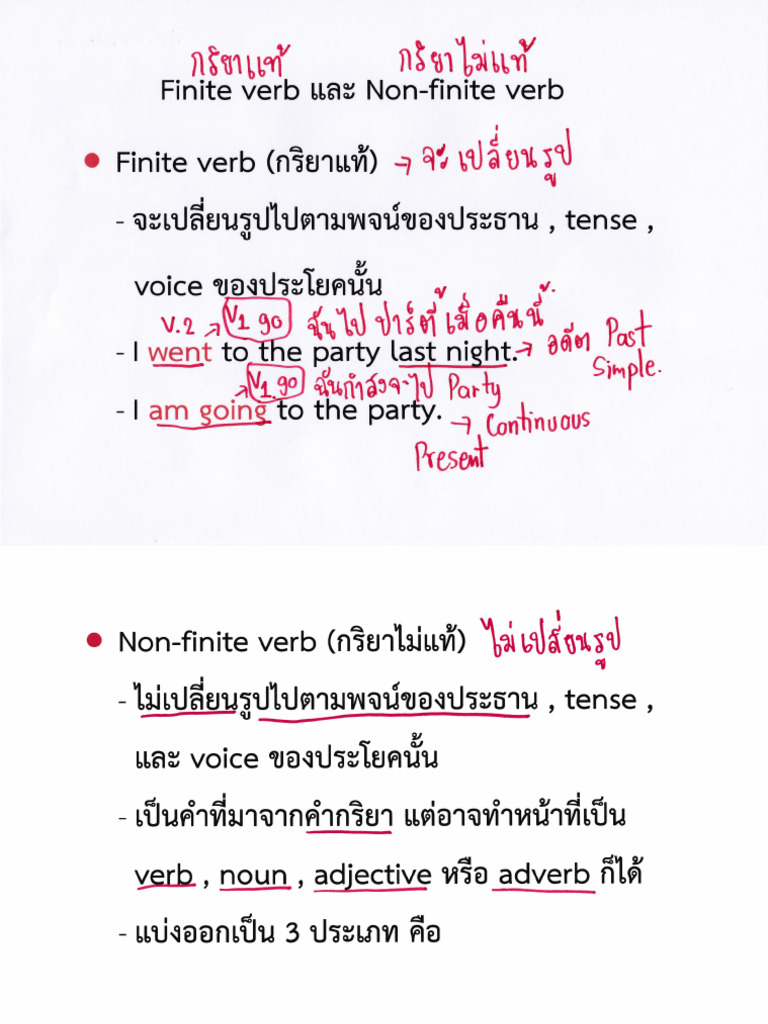 กริยาแท้ กริยาไม่แท้
Finite verb และ Non-finite verb
Finite verb (กริยาแท้) → จะเปลี่ยนรูป
- จะเปลี่ยนรูปไปตามพจน์ของประธาน , tense ,
voice ของประโยคนั้น
V.2 → V1 go ฉันไปปาร์ตี้เมื่อคืนนี้
- I went to the party last night. → อดีต Past
Simple.
→ V1.go ฉันกำลังจะไป Party
- I am going to the party. → Continuous
Present
Non-finite verb (กริยาไม่แท้) ไม่เปลี่ยนรูป
- ไม่เปลี่ยนรูปไปตามพจน์ของประธาน , tense ,
และ voice ของประโยคนั้น
- เป็นคำที่มาจากคำกริยา แต่อาจทำหน้าที่เป็น
verb , noun , adjective หรือ adverb ก็ได้
- แบ่งออกเป็น 3 ประเภท คือ